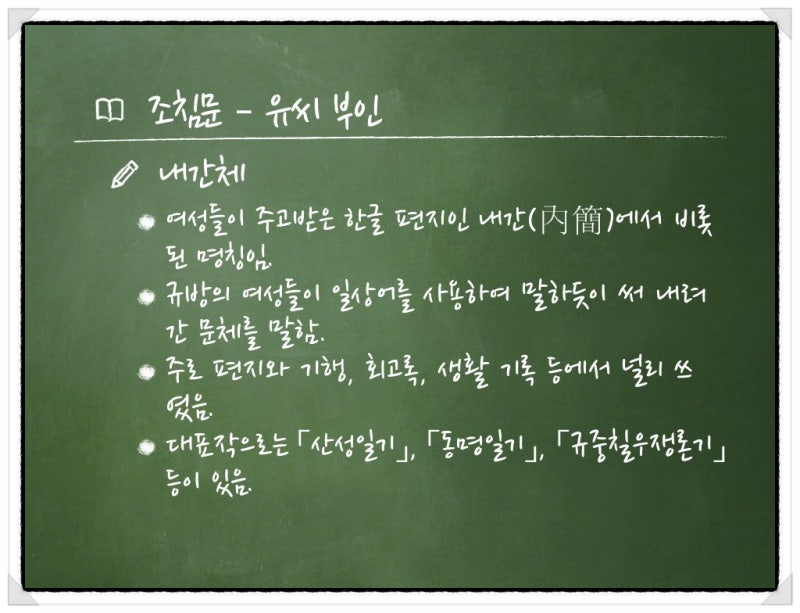 조침문 - 유씨 부인
내간체
여성들이 주고받은 한글 편지인 내간(內簡)에서 비롯
된 명칭임.
규방의 여성들이 일상어를 사용하여 말하듯이 써 내려
간 문체를 말함.
주로 편지와 기행, 회고록, 생활 기록 등에서 널리 쓰
였음.
대표작으로는 「산성일기」, 「동명일기」, 「규중칠우쟁론기」
등이 있음.